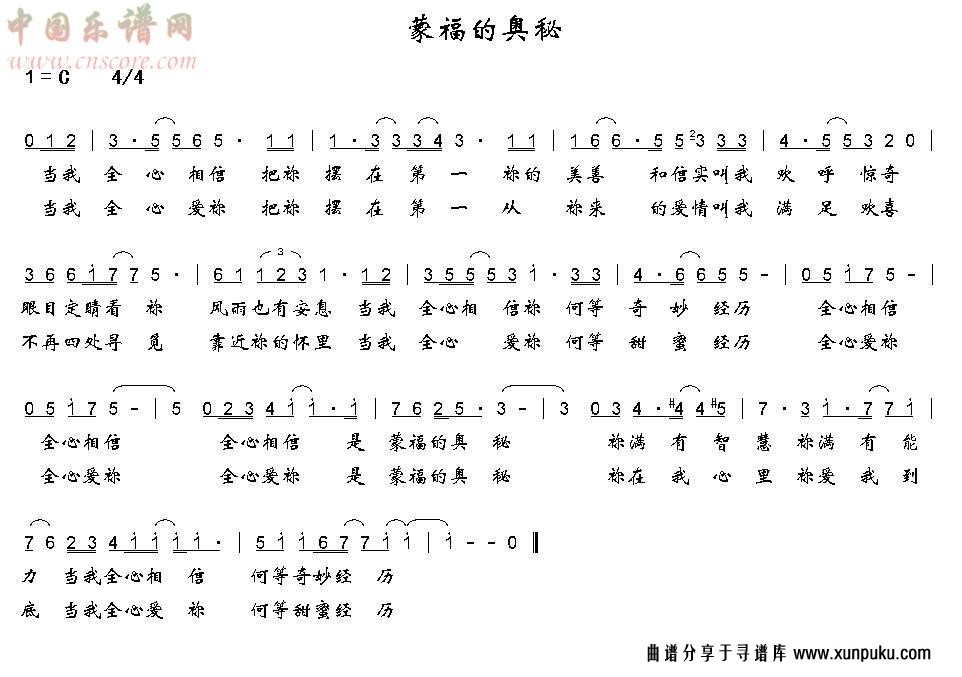 中国乐谱网
www.cnscore.com
蒙福的奥秘
1=C 4/4
0 1 2 | 3 · 5 5 6 5 · 1 1 | 1 · 3 3 3 4 3 · 1 1 | 1 6 6 · 5 5 2 3 3 3 | 4 · 5 5 3 2 0 |
当我 全 心 相信 把祢 摆 在 第 一 祢的 美善 和信实叫我 欢 呼 惊奇
当我 全 心 爱祢 把祢 摆 在 第 一 从 祢来 的爱情叫我 满 足 欢喜
3
3 6 6 i 7 7 5 · | 6 1 1 2 3 1 · 1 2 | 3 5 5 5 3 i · 3 3 | 4 · 6 6 5 5 - | 0 5 i 7 5 - |
眼目定睛看 祢 风雨也有安息 当我 全心相 信祢 何等 奇 妙 经历 全心相信
不再四处寻 觅 靠近祢的怀里 当我 全心 爱祢 何等 甜 蜜 经历 全心爱祢
0 5 i 7 5 - | 5 0 2 3 4 i i · i | 7 6 2 5 · 3 - | 3 0 3 4 · #4 4 #5 | 7 · 3 i · 7 7 i |
全心相信 全心相信 是 蒙福的奥 秘 祢满 有 智 慧 祢满 有 能
全心爱祢 全心爱祢 是 蒙福的奥 秘 祢在 我 心 里 祢爱 我 到
7 6 2 3 4 i i i i · | 5 i i 6 7 7 i i | i - - 0 ‖
力 当我全心相 信 何等奇妙经 历
底 当我全心爱 祢 何等甜蜜经 历
曲谱分享于寻谱库 www.xunpuku.com